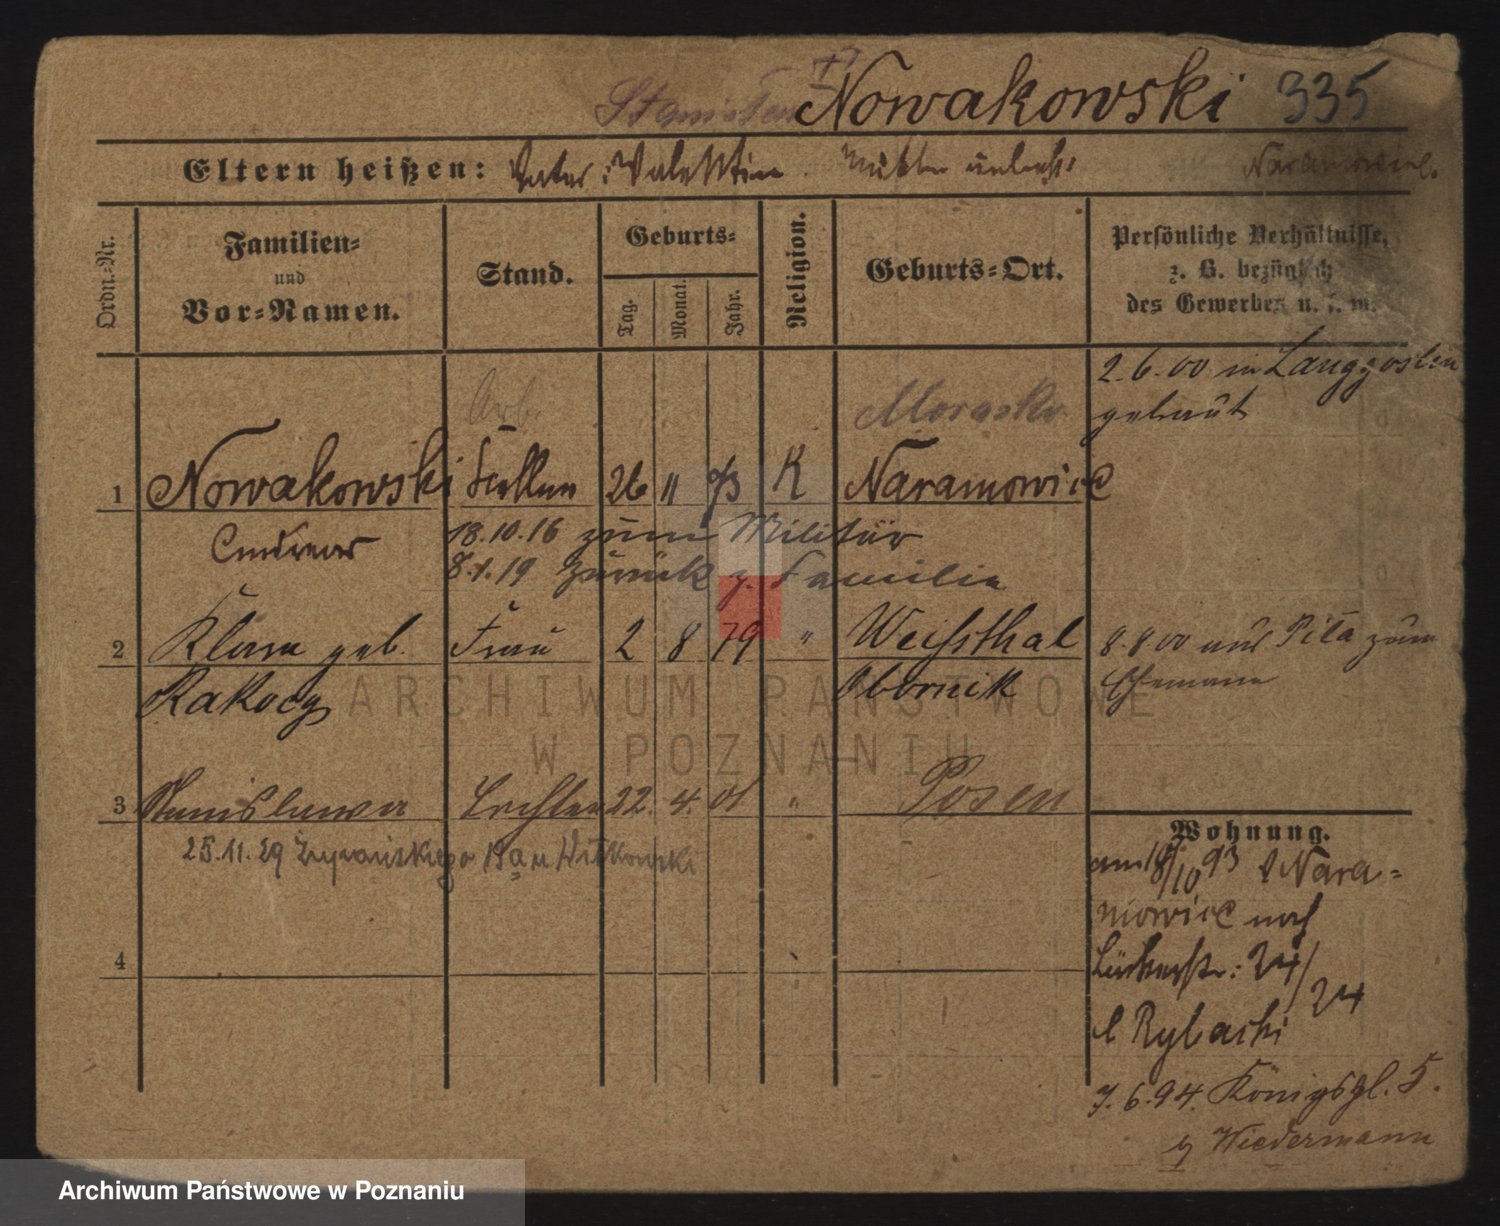 Nowakowski 335
Eltern heißen: Vater: Valentin Mutter unbek. Naramowice.
Ordn.-Nr.
Familien-
und
Vor-Namen.
Stand.
Geburts-
Tag.
Monat.
Jahr.
Religion.
Geburts-Ort.
Persönliche Verhältnisse,
z. B. bezüglich
des Gewerbes u. s. w.
2.6.00 in Langgoslin
getraut
Arb. Morasko
1 Nowakowski 26 11 73 K Naramowice
Andreas 18.10.16 zum Militär
8.1.19 zurück z. Familie
2 Klara geb. Frau 2 8 79 " Weissthal 8.8.00 aus Pila zum
Rakocy Obornik Ehemann
3 Stanislawa Tochter 22. 4. 01 " Posen
25.11.29 Witkowski
4
Wohnung.
am 18/10 93 v Nara-
mowice nach
24/24
b Rybacki
7.6.94. Königspl. 5.
b Wiedermann
ARCHIWUM PAŃSTWOWE
W POZNANIU
Archiwum Państwowe w Poznaniu